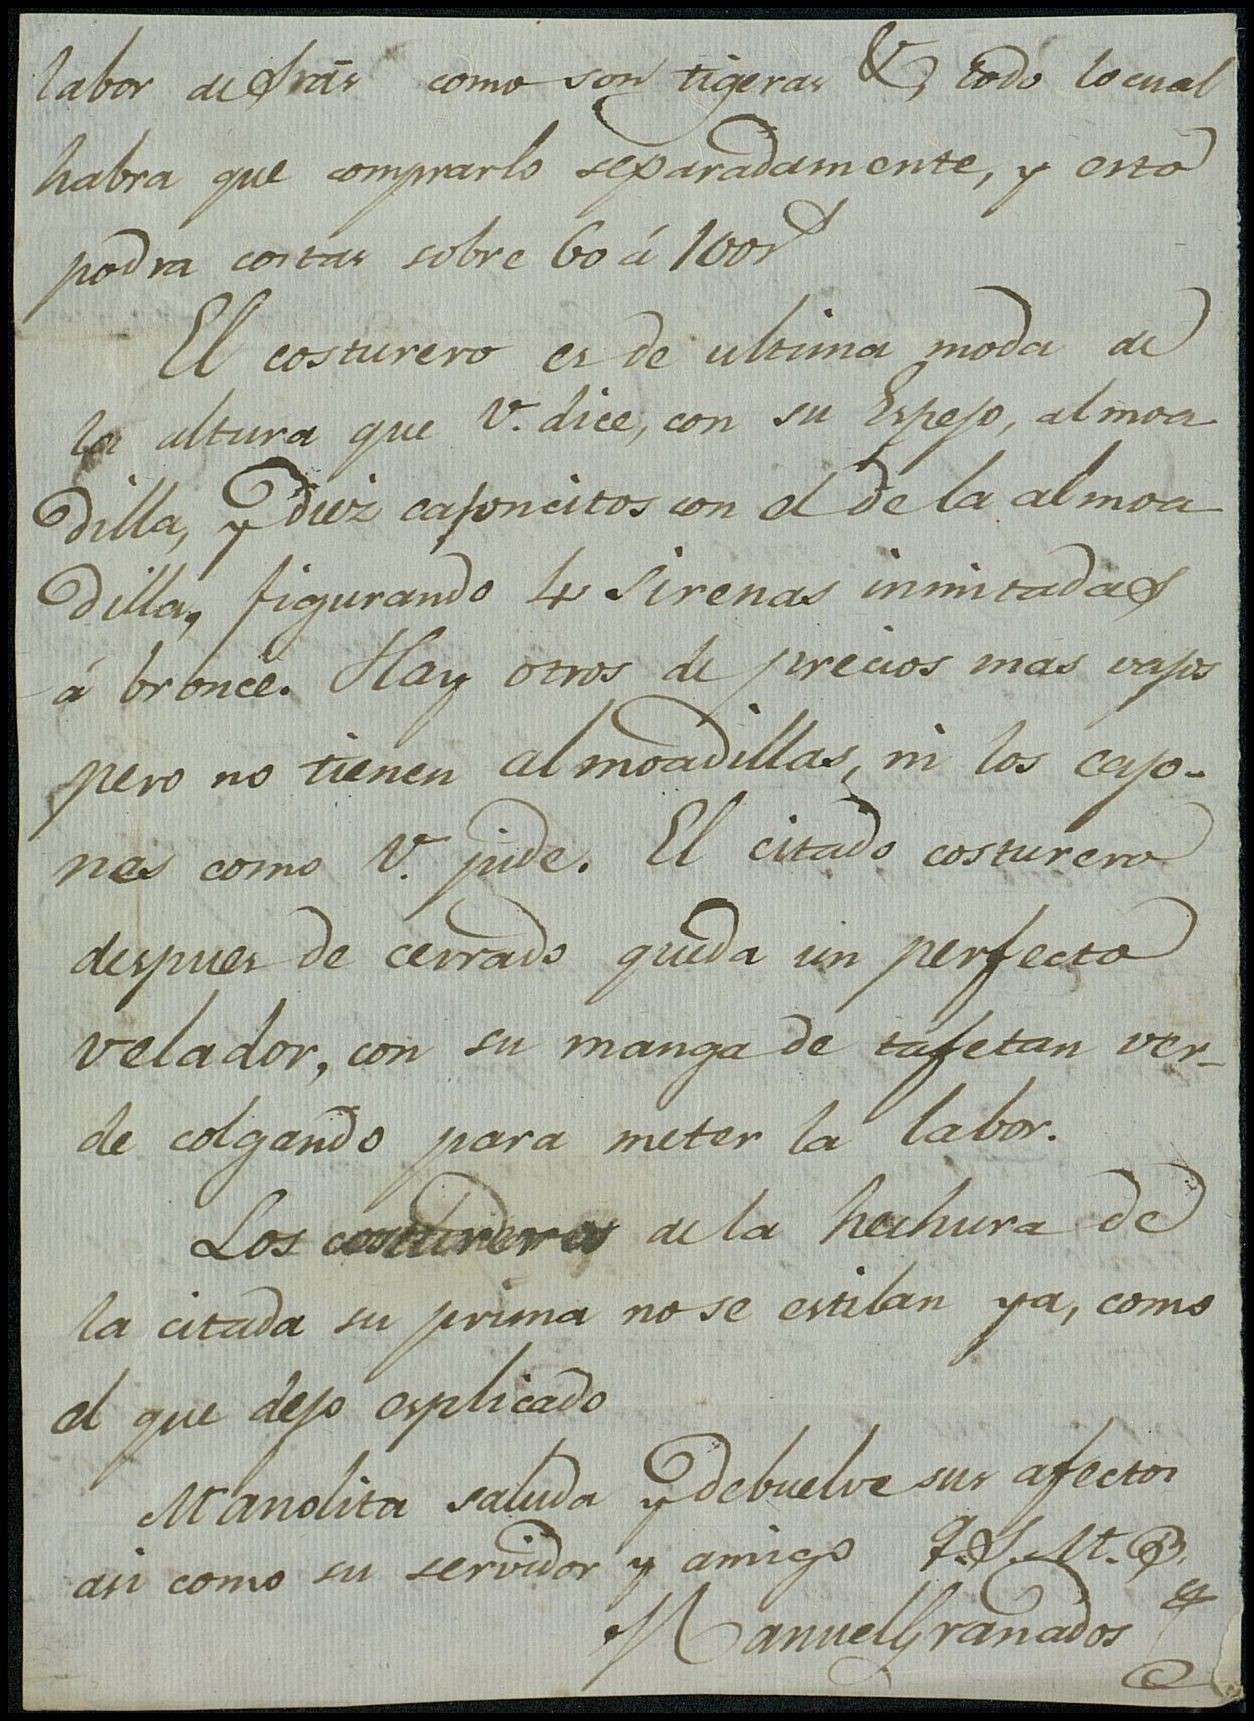 labor de Srās como son tigeras &, todo locual
habra que comprarlo separadamente, y esto
podra costar sobre 60 á 100 rs
El costurero es de ultima moda de
la altura que V. dice, con su Espejo, almoa
dilla, y diez cajoncitos con el de la almoa
dilla, figurando 4 Sirenas inmitadas
á bronce. Hay otros de precios mas vajos
pero no tienen almoadillas, ni los cajo-
nes como V. pide. El citado costurero
despues de cerrado queda un perfecto
velador, con su manga de tafetan ver-
de colgando para meter la labor.
Los costureros de la hechura de
la citada su prima no se estilan ya, como
el que dejo esplicado
Manolita saluda y debuelve sus afectos
asi como su servidor y amigo Q. S. M. B.
Manuel Granados